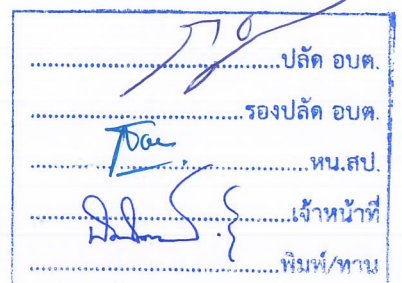 ..............................ปลัด อบต.
..........................รองปลัด อบต.
..................................หน.สป.
................................เจ้าหน้าที่
..............................พิมพ์/ทาน